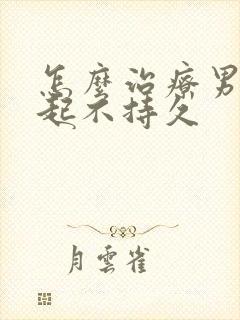 怎麼治療男
起不持久
月雲雀